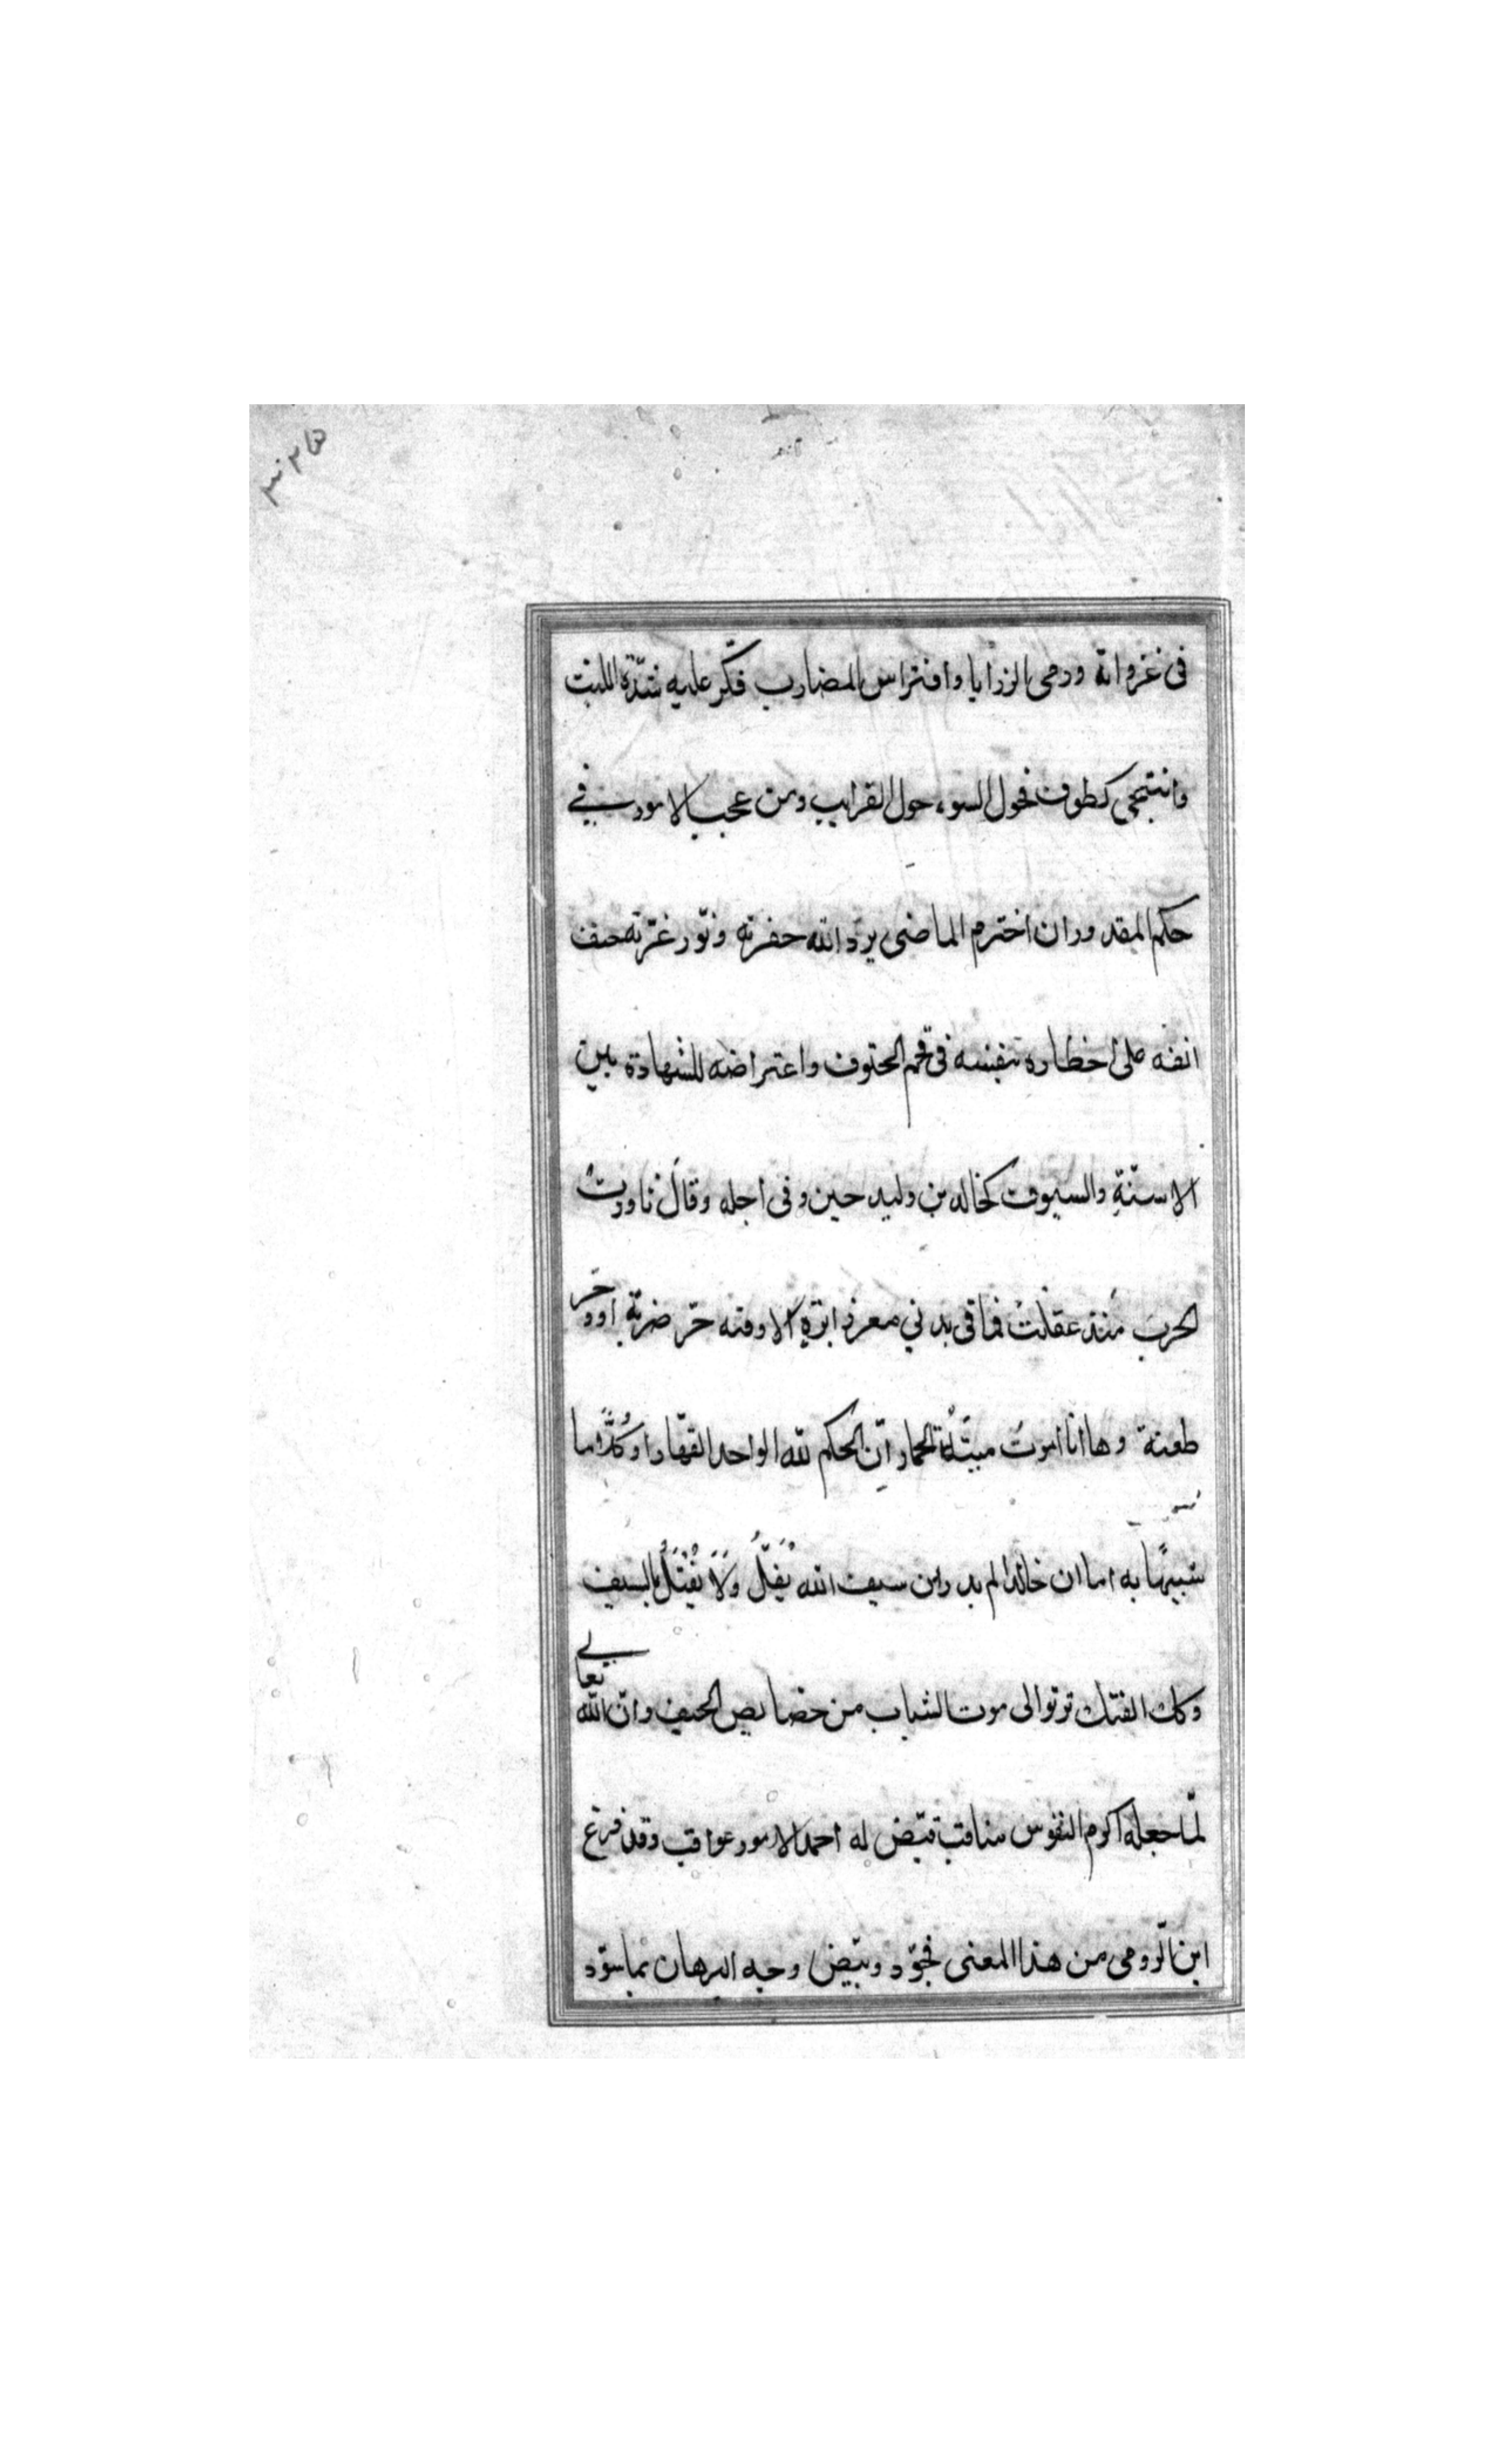 فى غزواته ورمى الرزايا وافتراس المضارب فكّر عليه شدّة الليث
وانتحى كطوف فحول السوء حول القرايب ومن عجب الامور في
حكم المقدوران اخترم الماضى برّد الله حفرته ونوّر غرّته حتف
انفه على اخطاره بنفسه فى قحم الحتوف واعتراضه للشهادة بين
الاسنّةِ والسيوف كخالد بن وليد حين وفى اجله وقالَ ناورتُ
الحربَ مُنذ عقلتُ فما فى بدني مغرز ابرةٍ الا وفيه حرّ ضربة او وخز
طعنة وها انا اموتُ ميتَةَ الحمار انّ الحكم للّه الواحد القهّار او كُدّرا ما
شبيهًا به اما ان خالدا لم يدر اين سيف الله يُفَلُّ ولَا يُقْتَلُ بالسيف
وكان الفتك موت الشباب من خصايص الحيف وانّ الله تعالى
لمّا جعله اكرم النفوس مناقب قيّض له احمد الامور عواقب وقد فرغ
ابن الرّومى من هذا المعنى فجوّد وبيّض وجه البرهان بما سوّد